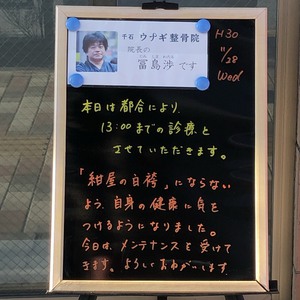 千石 ウナギ整骨院
院長の
冨島渉です
H30
11/28
Wed
本日は都合により、
13:00までの診療と
させていただきます。
「紺屋の白袴」にならない
よう、自身の健康に気を
つけるようになりました。
今日は、メンテナンスを受けて
きます。よろしくおねがいします。